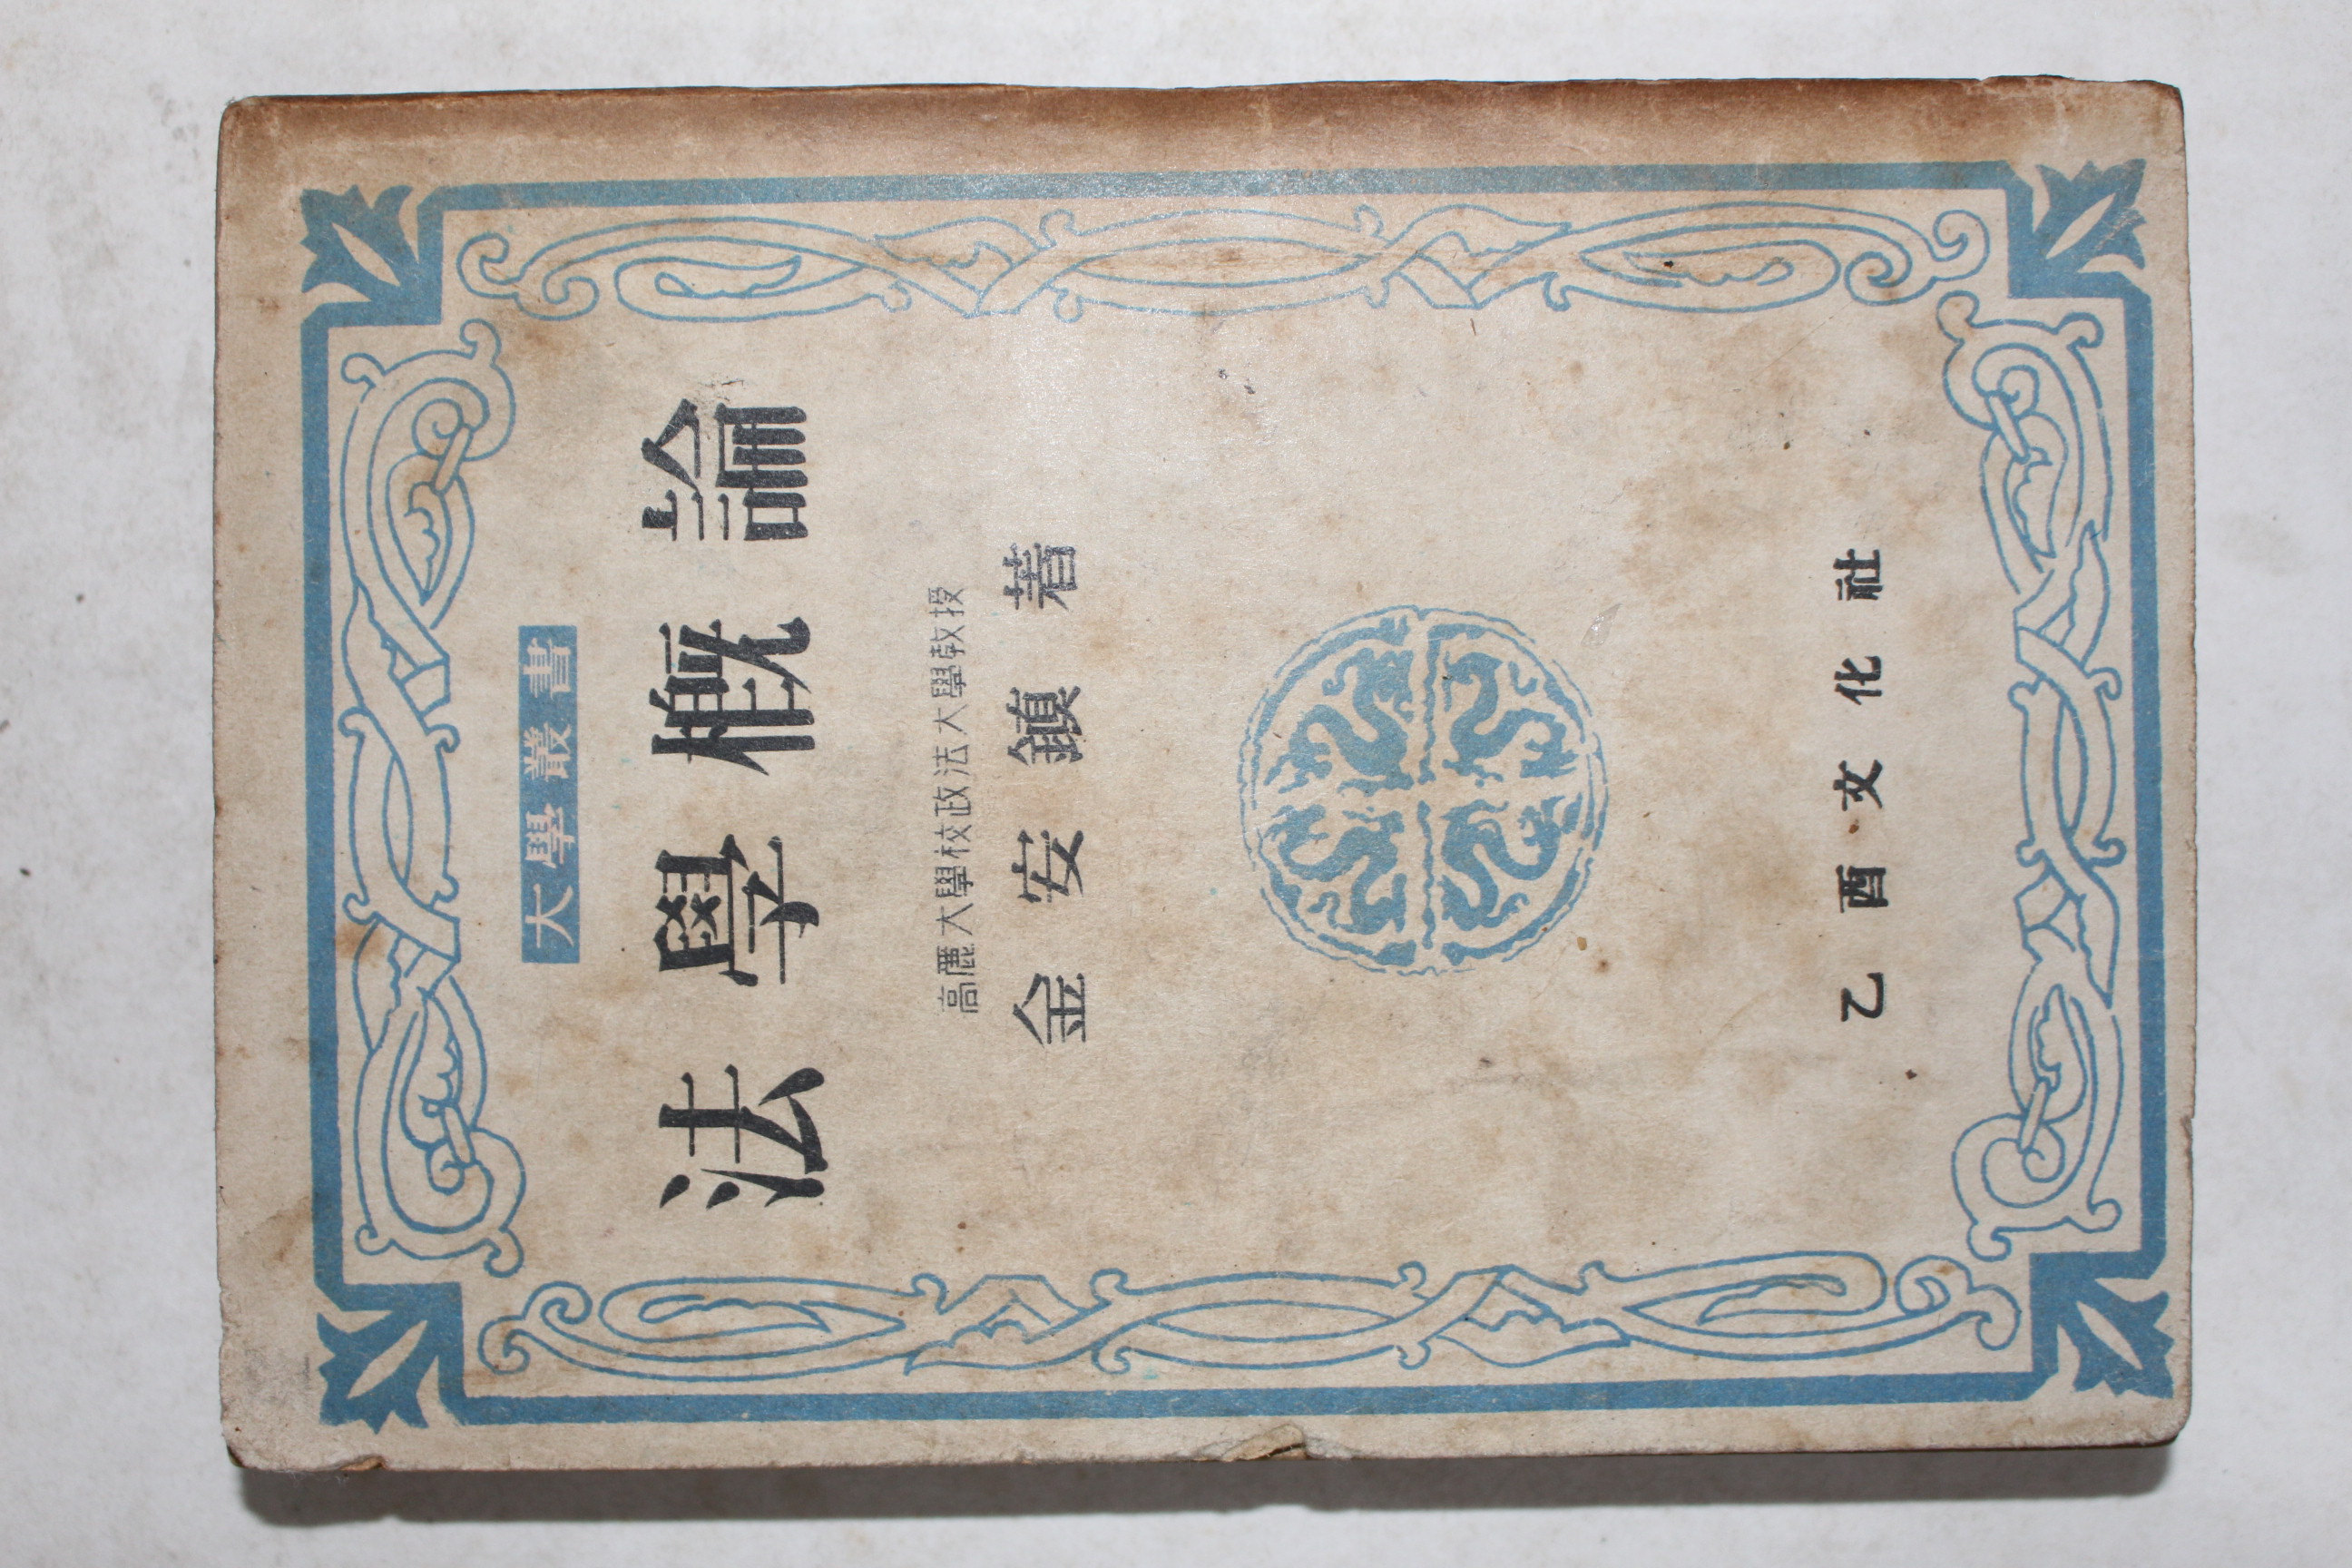 大學叢書
法學槪論
高麗大學校政法大學敎授
金安鎭著
乙酉文化社